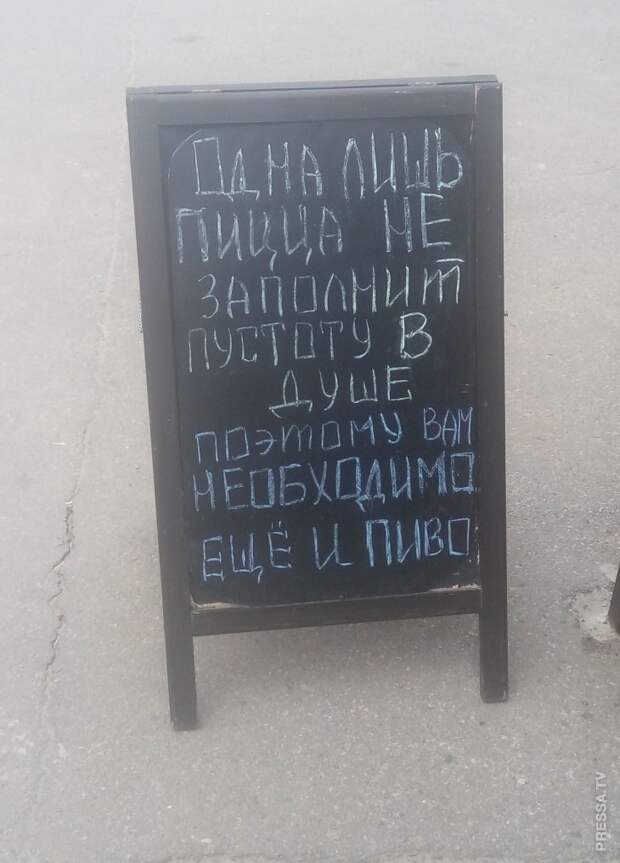 ОДНА ЛИШЬ
ПИЦЦА НЕ
ЗАПОЛНИТ
ПУСТОТУ В
ДУШЕ
ПОЭТОМУ ВАМ
НЕОБХОДИМО
ЕЩЁ И ПИВО
PRESSA.TV